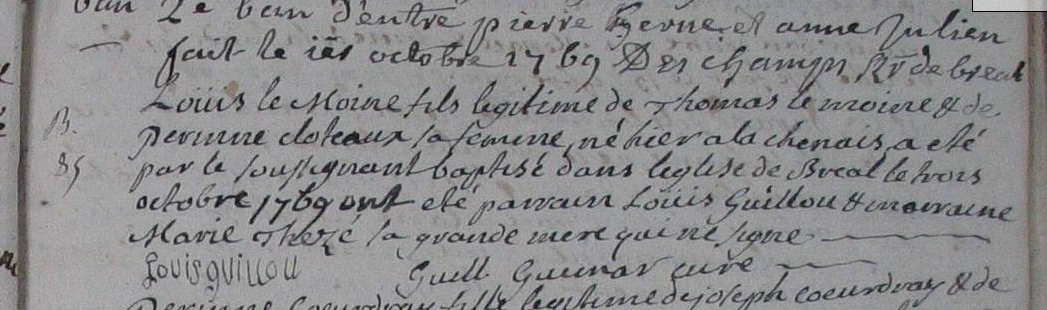 ban Le ban d'entre pierre herve et anne Julien
fait le ier octobre 1769 Deschamps Rr de breal
Loüis le Moine fils legitime de Thomas le moine & de
B. perinne cloteaux sa femme, né hier a la chenais, a eté
85 par le soussignant baptisé dans l'eglise de Breal le trois
octobre 1769 ont eté parrain Loüis Guillou & marraine
Marie Thezé sa grande mere qui ne signe
Louis guillou Guill Guinar curé
Perinne Coeurdray fille legitime de joseph coeurdray & de